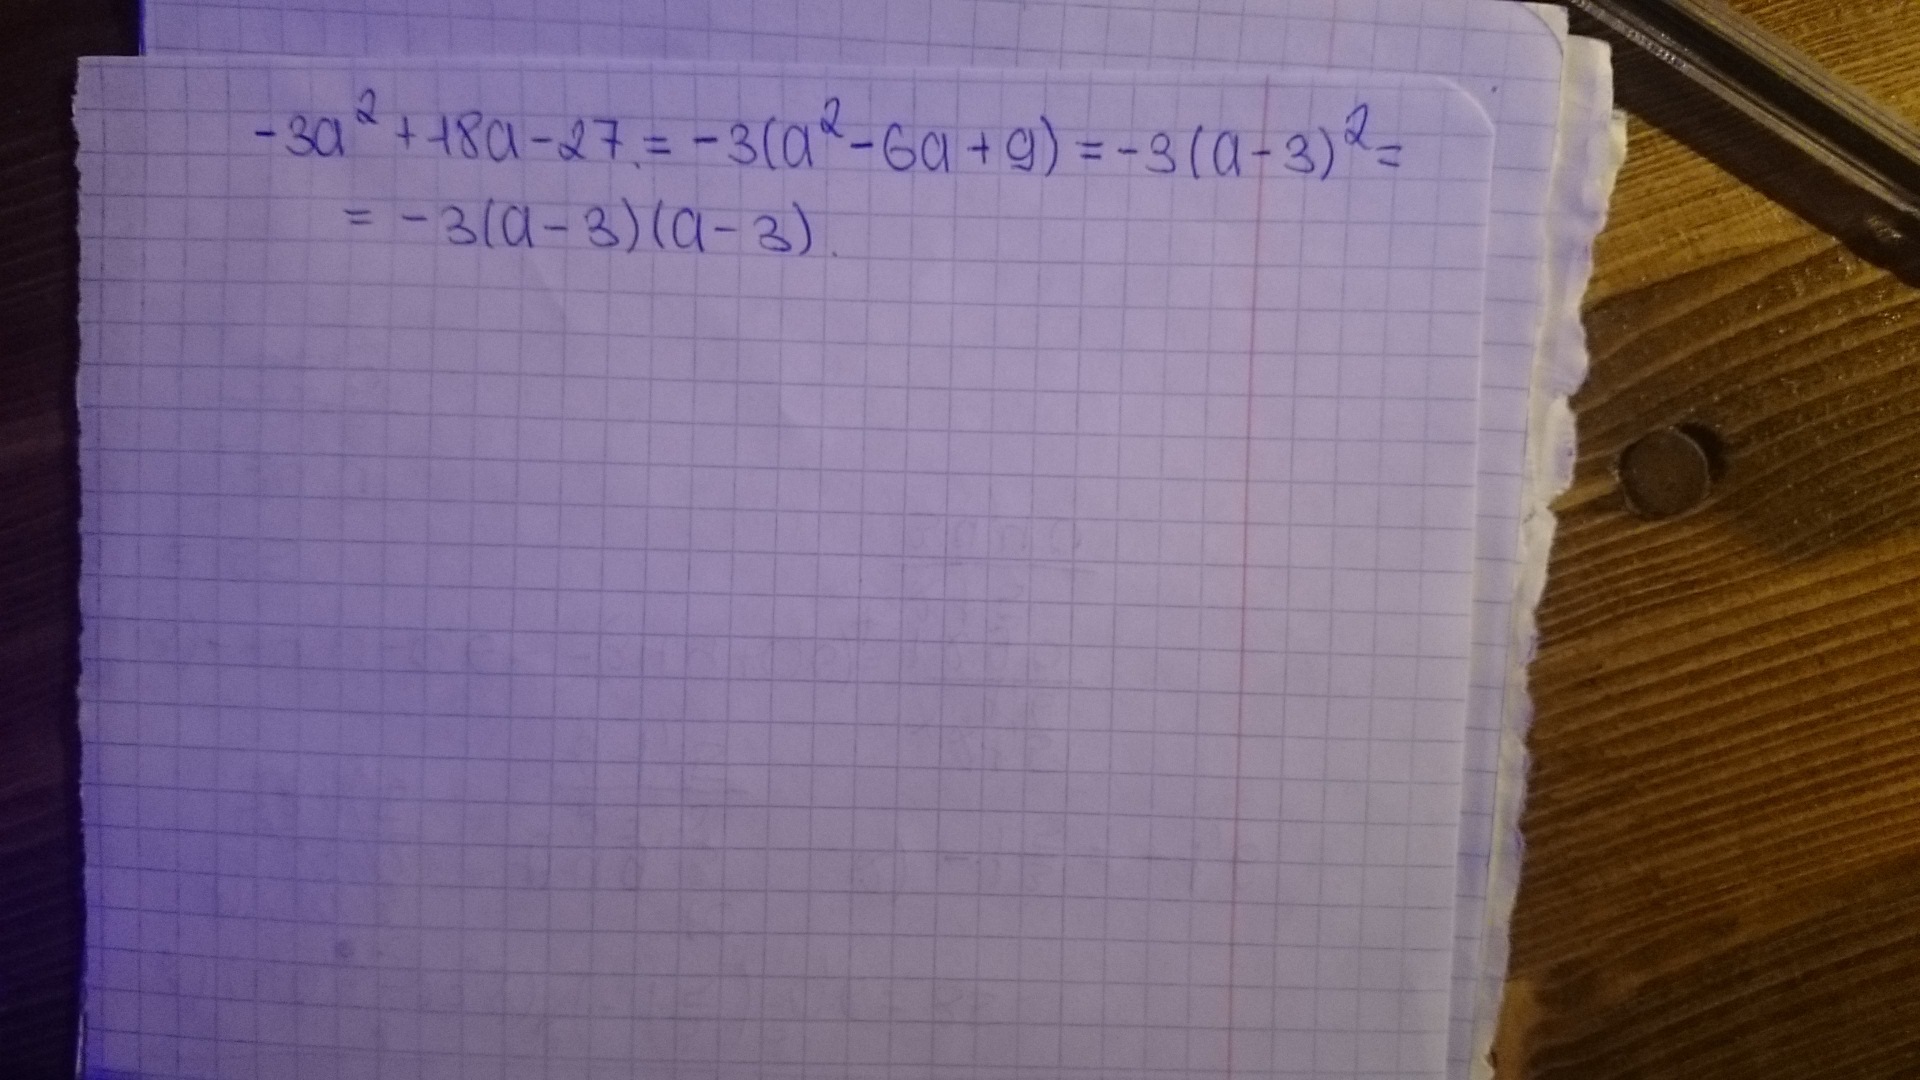 -3a² + 18a - 27 = -3(a² - 6a + 9) = -3(a - 3)² =
= -3(a - 3)(a - 3).